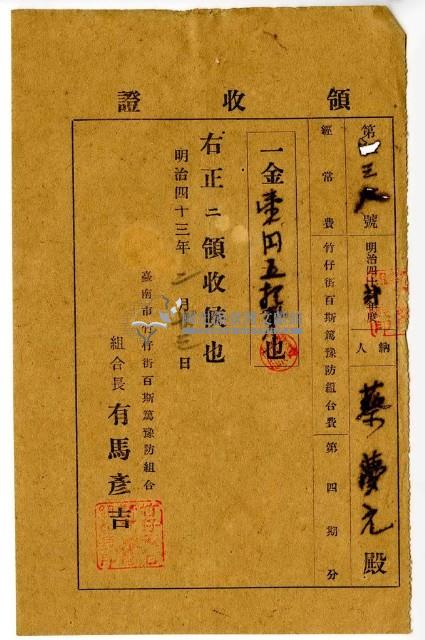 領收證
第 三 號 明治四十 年度 納人 蔡夢元殿
經常費 竹仔街百斯篤豫防組合費 第四期分
一金壹円五拾 也
右正ニ領收候也
明治四十三年二月 三日
臺南市竹仔街百斯篤豫防組合
組合長 有馬彥吉